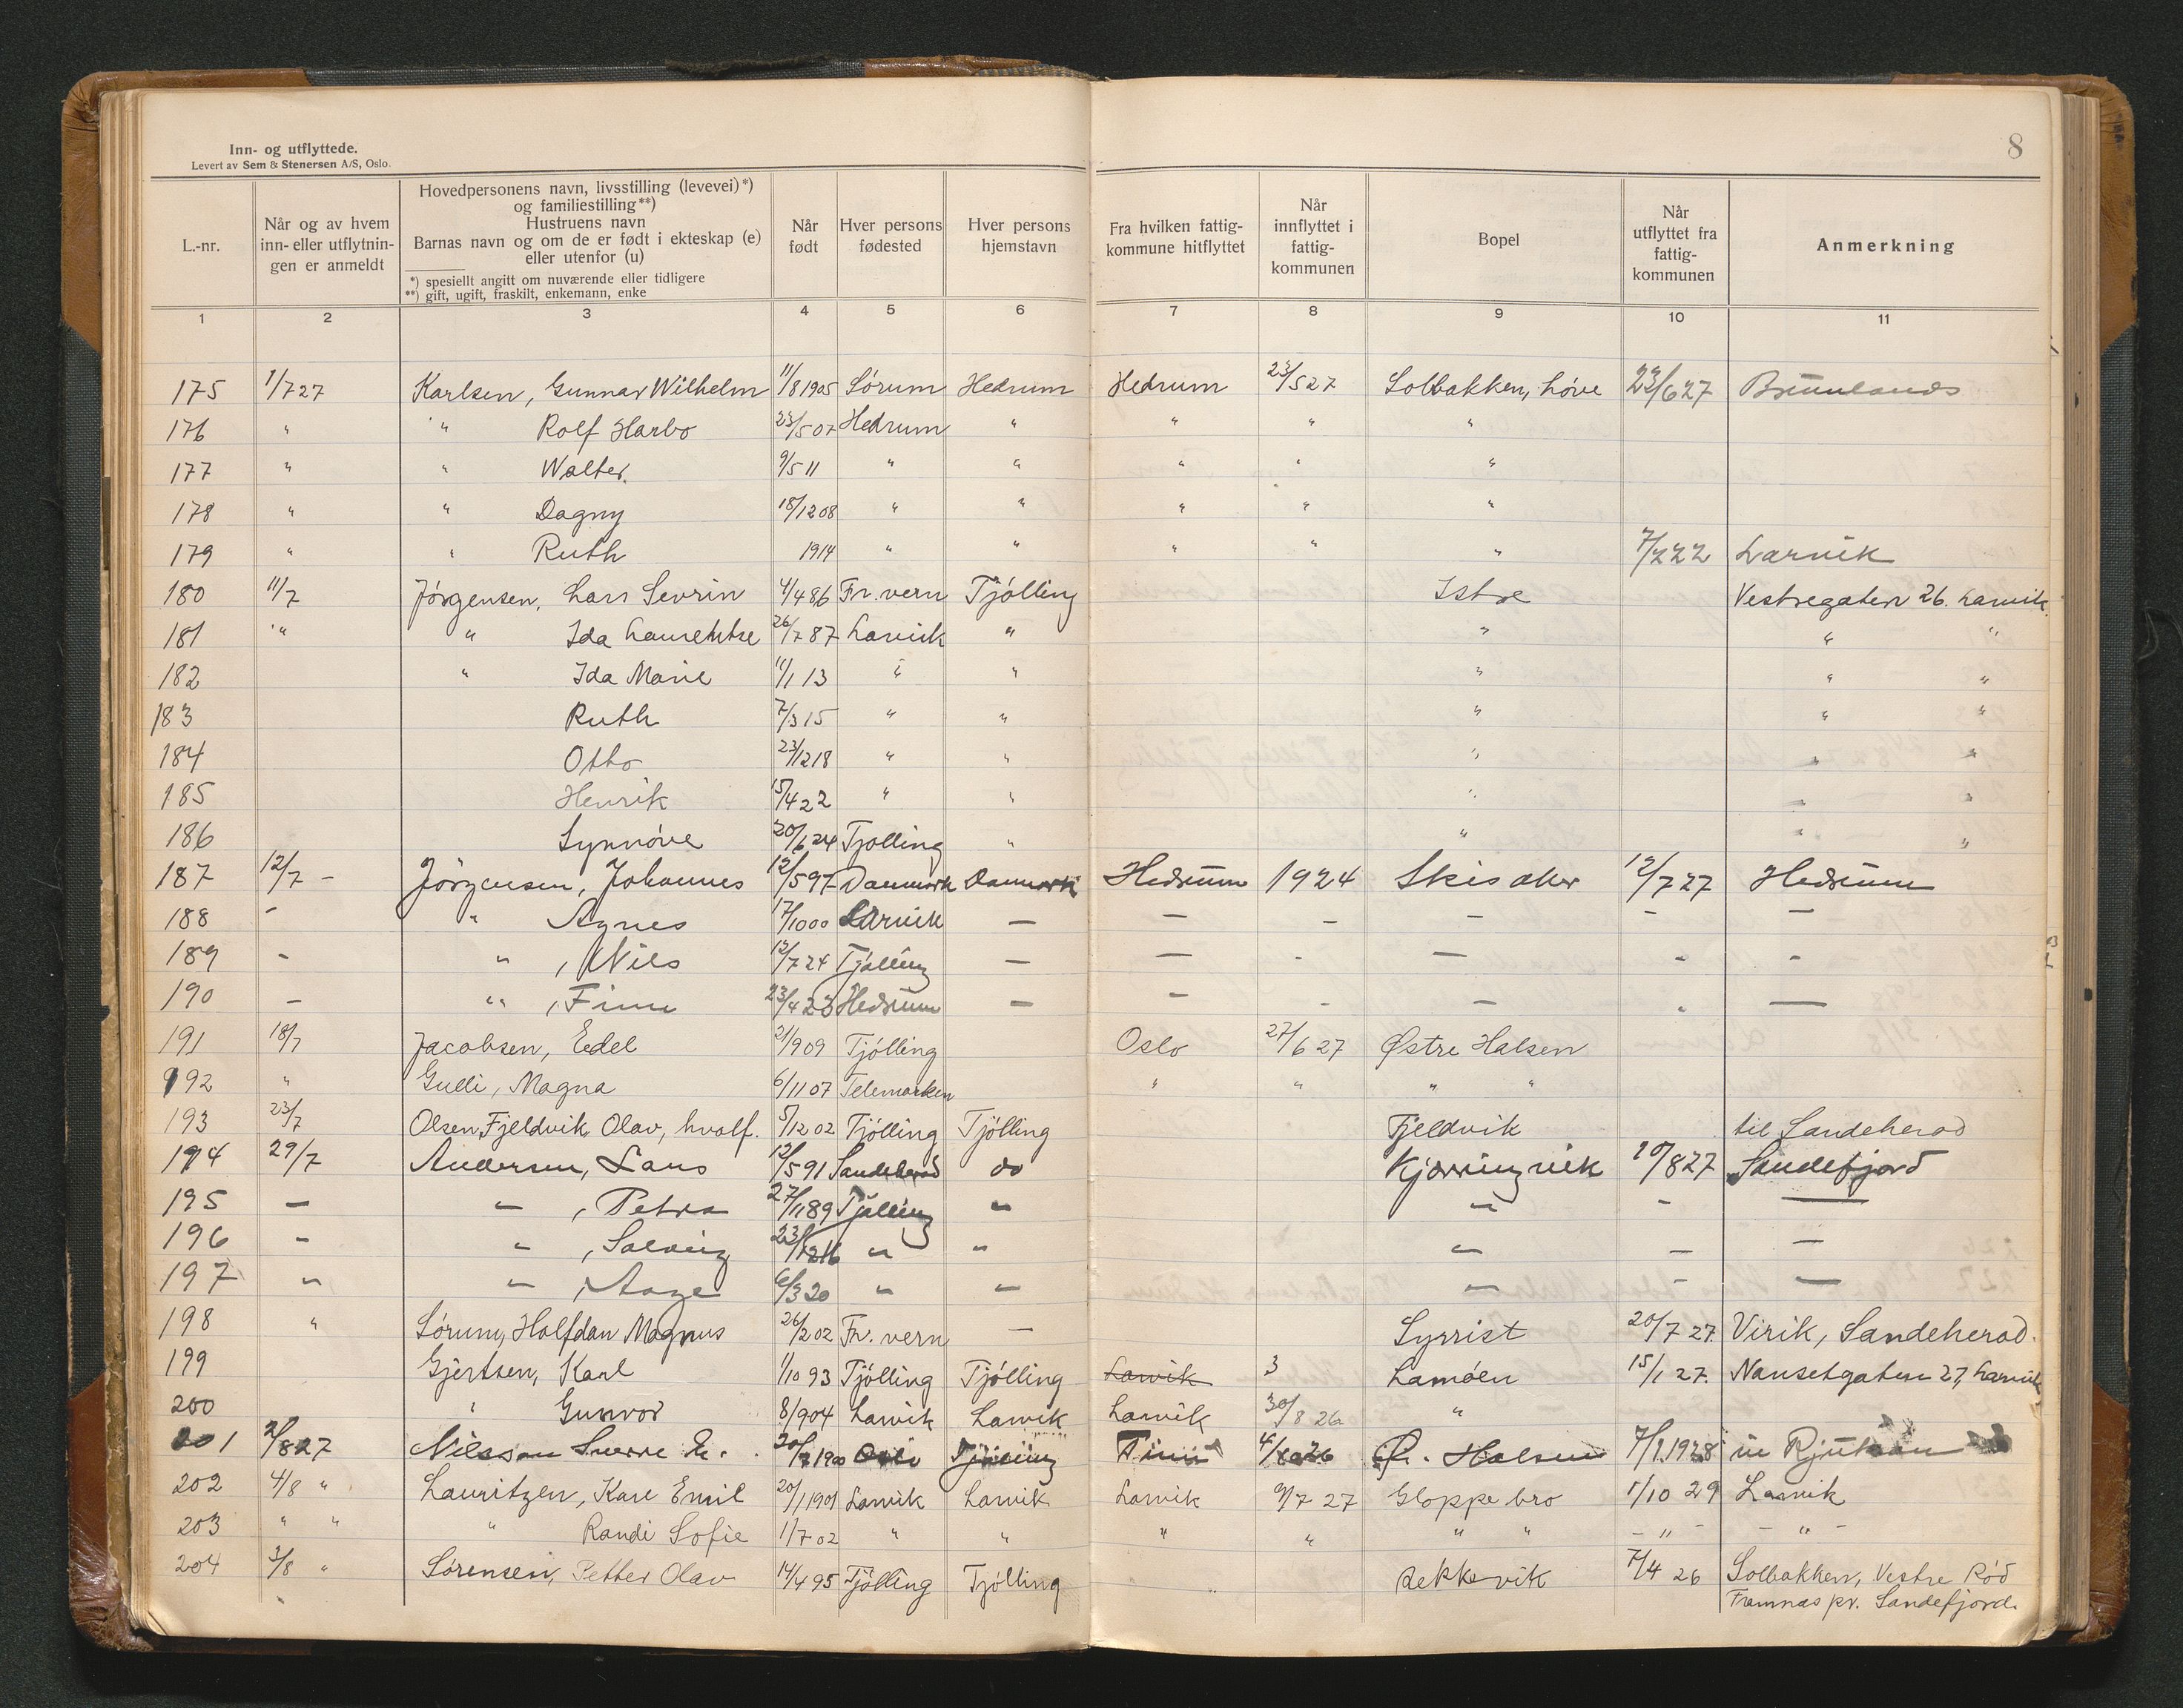 Inn- og utflyttede.
Levert av Sem & Stenersen A/S, Oslo.
8
L.-nr.
Når og av hvem inn- eller utflytnin- gen er anmeldt
Hovedpersonens navn, livsstilling (levevei)*) og familiestilling**) Hustruens navn Barnas navn og om de er født i ekteskap (e) eller utenfor (u)
*) spesiellt angitt om nuværende eller tidligere
**) gift, ugift, fraskilt, enkemann, enke
Når født
Hver persons fødested
Hver persons hjemstavn
Fra hvilken fattig- kommune hitflyttet
Når innflyttet i fattig- kommunen
Bopel
Når utflyttet fra fattig- kommunen
Anmerkning
1 2 3 4 5 6 7 8 9 10 11
175 1/7 27 Karlsen, Gunnar Wilhelm 11/8 1905 Sørum Hedrum Hedrum 23/5 27 Solbakken, Løve 23/6 27 Brunlanes
176 " " Rolf Harbo 23/5 07 Hedrum " " " "
177 " " Walter. 9/5 11 " " " " "
178 " " Dagny 18/12 08 " " " " "
179 " " Ruth 1914 " " " " " 7/7 22 Larvik
180 11/7 Jörgensen, Lars Sevrin 4/4 86 Fr.vern Tjölling Istre Vestregaten 26. Larvik.
181 " " Ida Laurentse 26/7 87 Larvik " " " "
182 " Ida Marie 11/1 13 " " " " "
183 Ruth 7/3 15 " " " " "
184 Otto 23/12 18 " " " " "
185 Henrik 15/4 22 " " " " "
186 Synnöve 20/6 24 Tjölling " " " "
187 12/7 - Jörgensen, Johannes 12/5 97 Danmark Danmark Hedrum 1924 Skisaker 12/7 27 Hedrum
188 - " Agnes 17/10 00 Larvik — — - - - —
189 - " , Nils 12/7 24 Tjølling — — - — - -
190 - " , Finn 23/4 23 Hedrum — - - — - —
191 18/7 Jacobsen, Edel 21/9 09 Tjölling Oslo 27/6 27 Østre Halsen
192 " Gulli, Magna 6/11 07 Telemarken " " " "
193 23/7 Olsen Fjeldvik, Olav, hvalf. 5/12 02 Tjölling Tjölling Fjeldvik til Sandeherad
194 29/7 Andersen, Lars 12/5 91 Sandeherad do Kjærringvik 10/8 27 Sandefjord
195 - " , Petra 27/11 89 Tjølling " " - —
196 - " , Solveig 23/12 16 " " " - —
197 " " , Aage 6/3 20 " - - - —
198 " Sørum, Halfdan Magnus 26/2 02 Fr. vern — Syrrist 20/7 27. Virik, Sandeherad.
199 Gjertsen, Karl 1/10 93 Tjölling Tjölling Larvik 3 Lamöen 15/1 27. Nansetgaten 27, Larvik
200 " Gunvor 8/9 04 Larvik Larvik Larvik 30/8 26 "
201 2/8 27 Nilsson Sverre E. 1900 Oslo Tjølling Tinn 26 Ø. Halsen 7/1 1928 Rjukan
202 4/8 " Lauritzen, Kare Emil 20/1 1901 Larvik Larvik Larvik 9/7 27 Gloppe bro 1/10 29 Larvik
203 " " " Randi Sofie 1/7 02 " " " " " " - " - - " -
204 3/8 " Sørensen, Petter Olav 14/4 95 Tjölling Tjölling Rekkevik 7/4 26 Solbakken, Vestre Röd
Framnæs pr. Sandefjord.